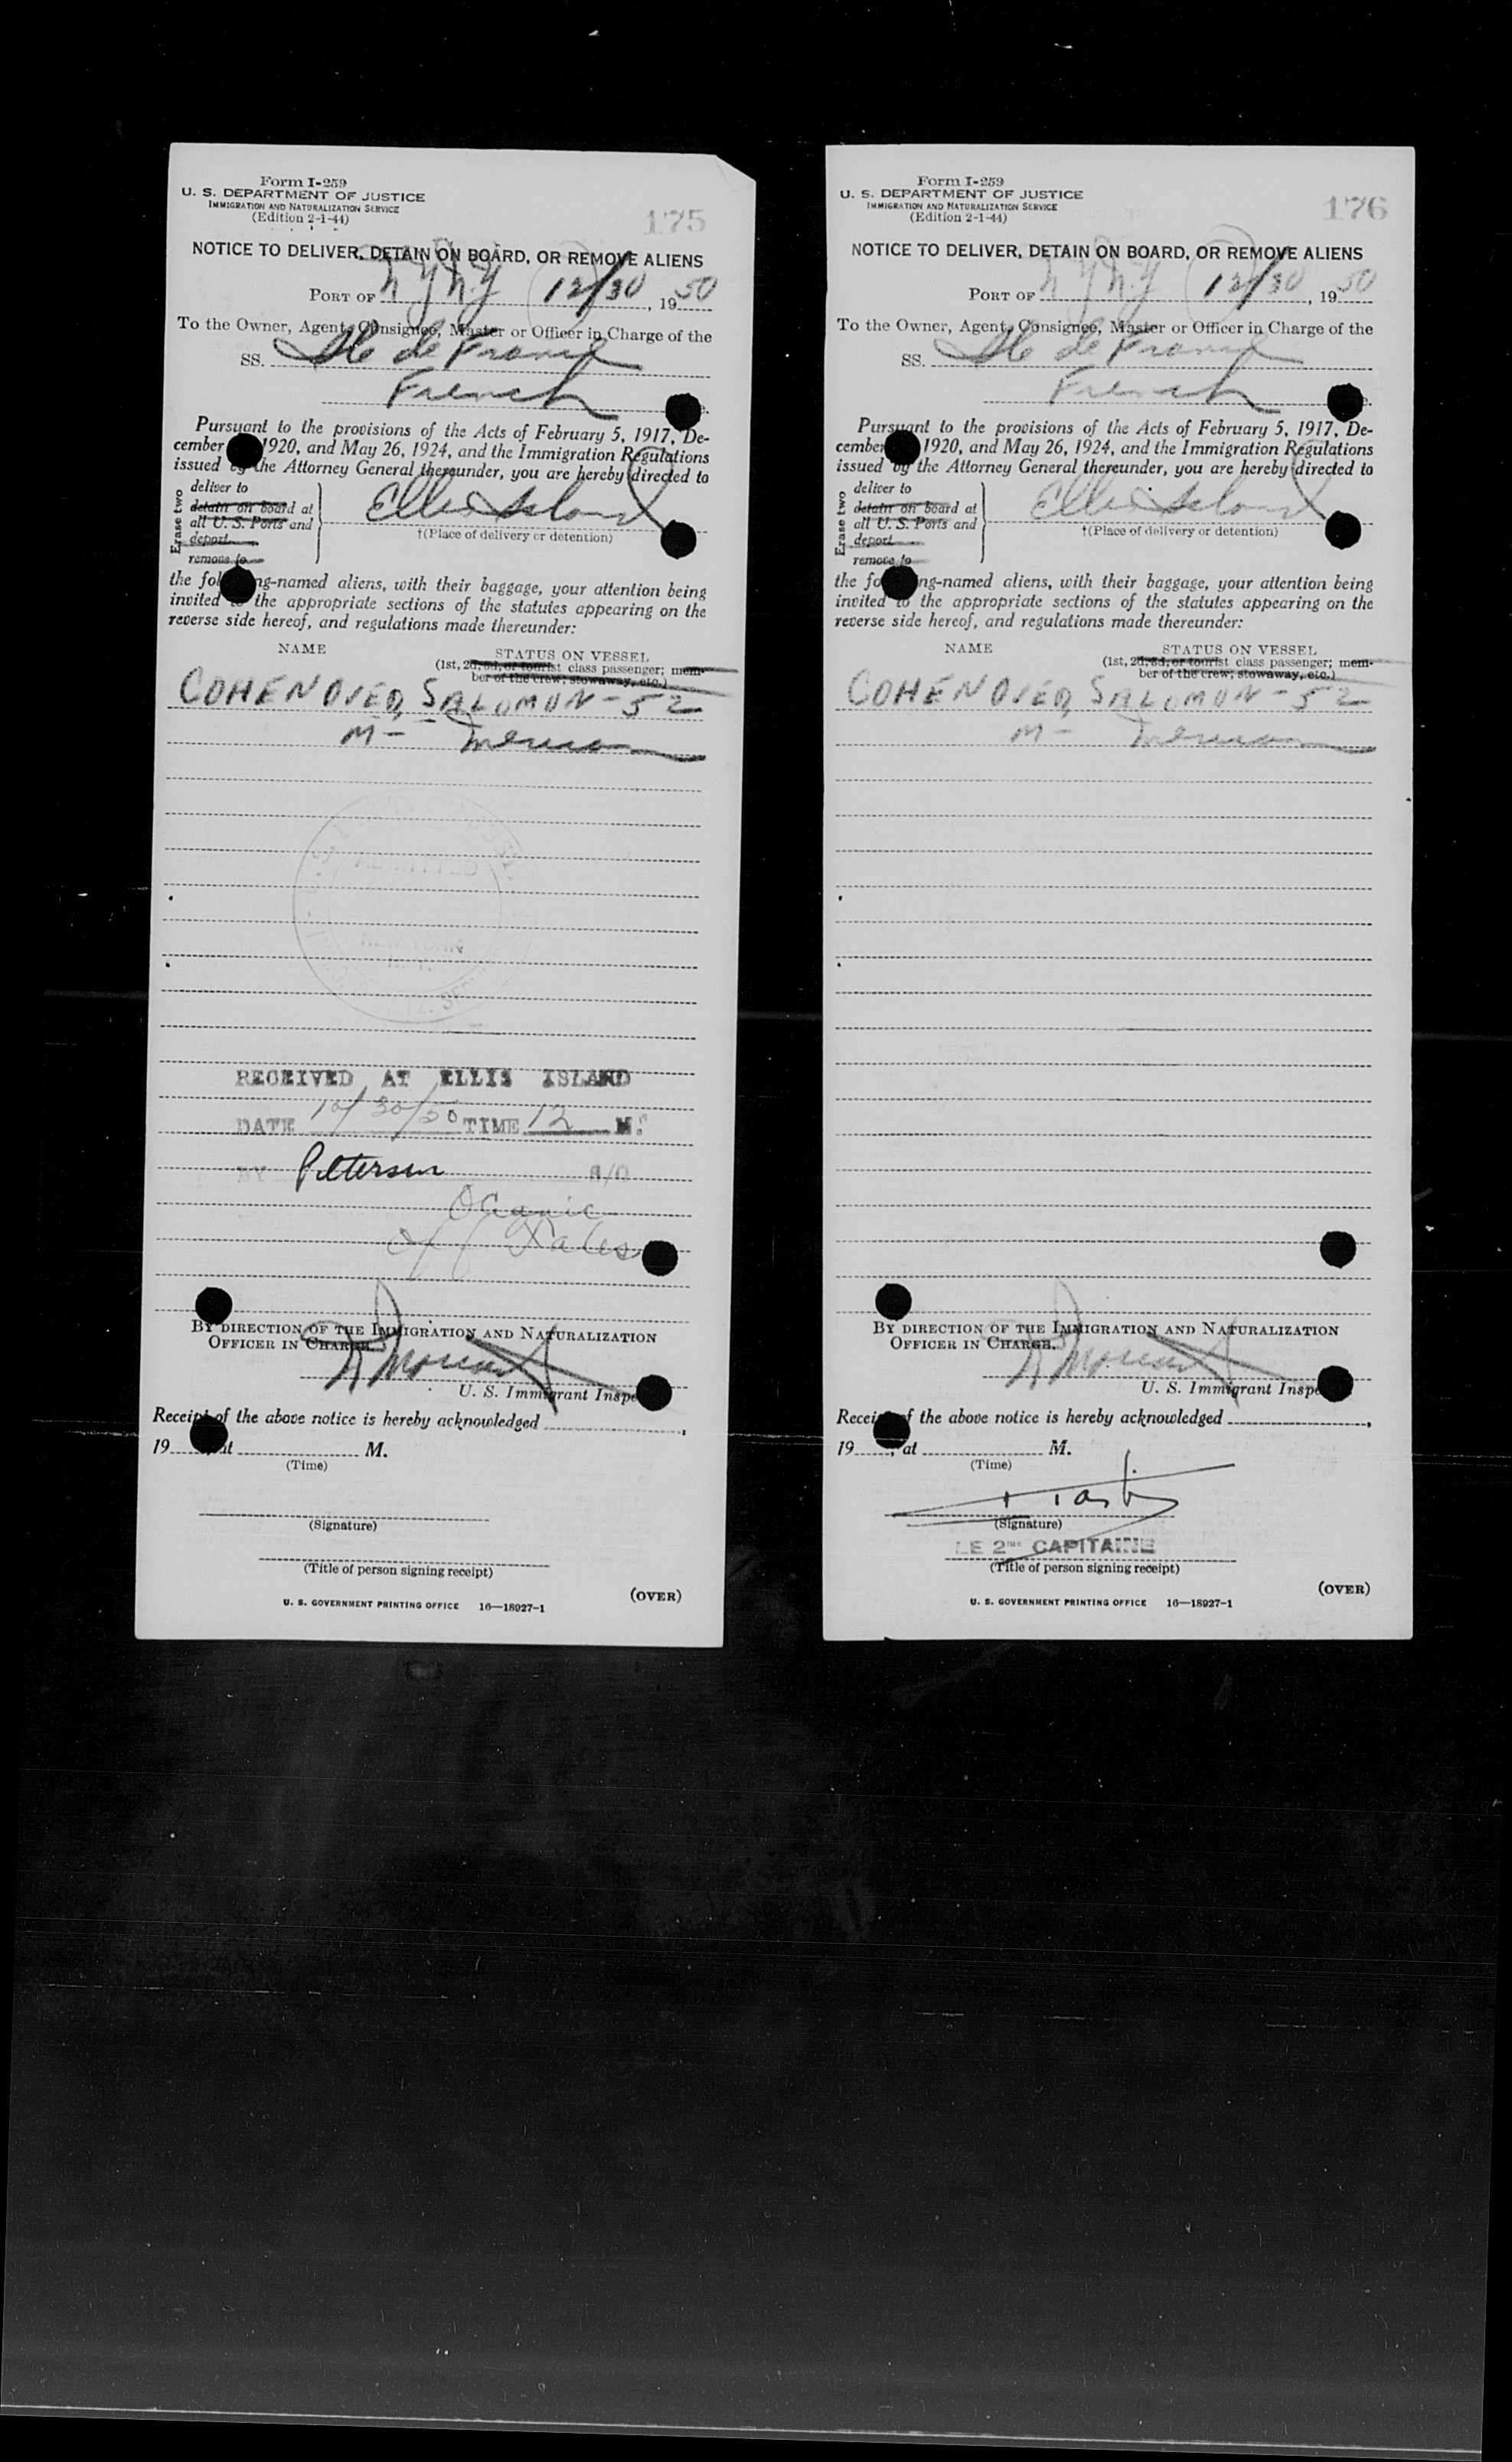 Form I-259
U. S. DEPARTMENT OF JUSTICE
IMMIGRATION AND NATURALIZATION SERVICE
(Edition 2-1-44)
175
NOTICE TO DELIVER, DETAIN ON BOARD, OR REMOVE ALIENS
PORT OF N Y N.Y 12/30, 1950
To the Owner, Agent, Consignee, Master or Officer in Charge of the
SS. Ile de France
French
Pursuant to the provisions of the Acts of February 5, 1917, De-
cember 1920, and May 26, 1924, and the Immigration Regulations
issued by the Attorney General thereunder, you are hereby directed to
Erase two
deliver to
detain on board at
all U. S. Ports and
deport
remove to
Ellis Island
†(Place of delivery or detention)
the following-named aliens, with their baggage, your attention being
invited to the appropriate sections of the statutes appearing on the
reverse side hereof, and regulations made thereunder:
NAME STATUS ON VESSEL
(1st, 2d, 3d, or tourist class passenger; mem-
ber of the crew; stowaway, etc.)
COHEN OVED, SALOMON - 52
M - Mexican
RECEIVED AT ELLIS ISLAND
DATE 12/30/50 TIME 12 M.
BY Petersen
Oceanic
BY DIRECTION OF THE IMMIGRATION AND NATURALIZATION
OFFICER IN CHARGE.
U. S. Immigrant Inspe
Receipt of the above notice is hereby acknowledged ,
19 at M.
(Time)
(Signature)
(Title of person signing receipt)
(OVER)
U. S. GOVERNMENT PRINTING OFFICE 16—18927-1
Form I-259
U. S. DEPARTMENT OF JUSTICE
IMMIGRATION AND NATURALIZATION SERVICE
(Edition 2-1-44)
176
NOTICE TO DELIVER, DETAIN ON BOARD, OR REMOVE ALIENS
PORT OF N Y N.Y 12/30, 1950
To the Owner, Agent, Consignee, Master or Officer in Charge of the
SS. Ile de France
French
Pursuant to the provisions of the Acts of February 5, 1917, De-
cember 1920, and May 26, 1924, and the Immigration Regulations
issued by the Attorney General thereunder, you are hereby directed to
Erase two
deliver to
detain on board at
all U. S. Ports and
deport
remove to
Ellis Island
†(Place of delivery or detention)
the following-named aliens, with their baggage, your attention being
invited to the appropriate sections of the statutes appearing on the
reverse side hereof, and regulations made thereunder:
NAME STATUS ON VESSEL
(1st, 2d, 3d, or tourist class passenger; mem-
ber of the crew; stowaway, etc.)
COHEN OVED, SALOMON - 52
M - Mexican
BY DIRECTION OF THE IMMIGRATION AND NATURALIZATION
OFFICER IN CHARGE.
U. S. Immigrant Inspe
Receipt of the above notice is hereby acknowledged ,
19 , at M.
(Time)
(Signature)
LE 2me CAPITAINE
(Title of person signing receipt)
(OVER)
U. S. GOVERNMENT PRINTING OFFICE 16—18927-1